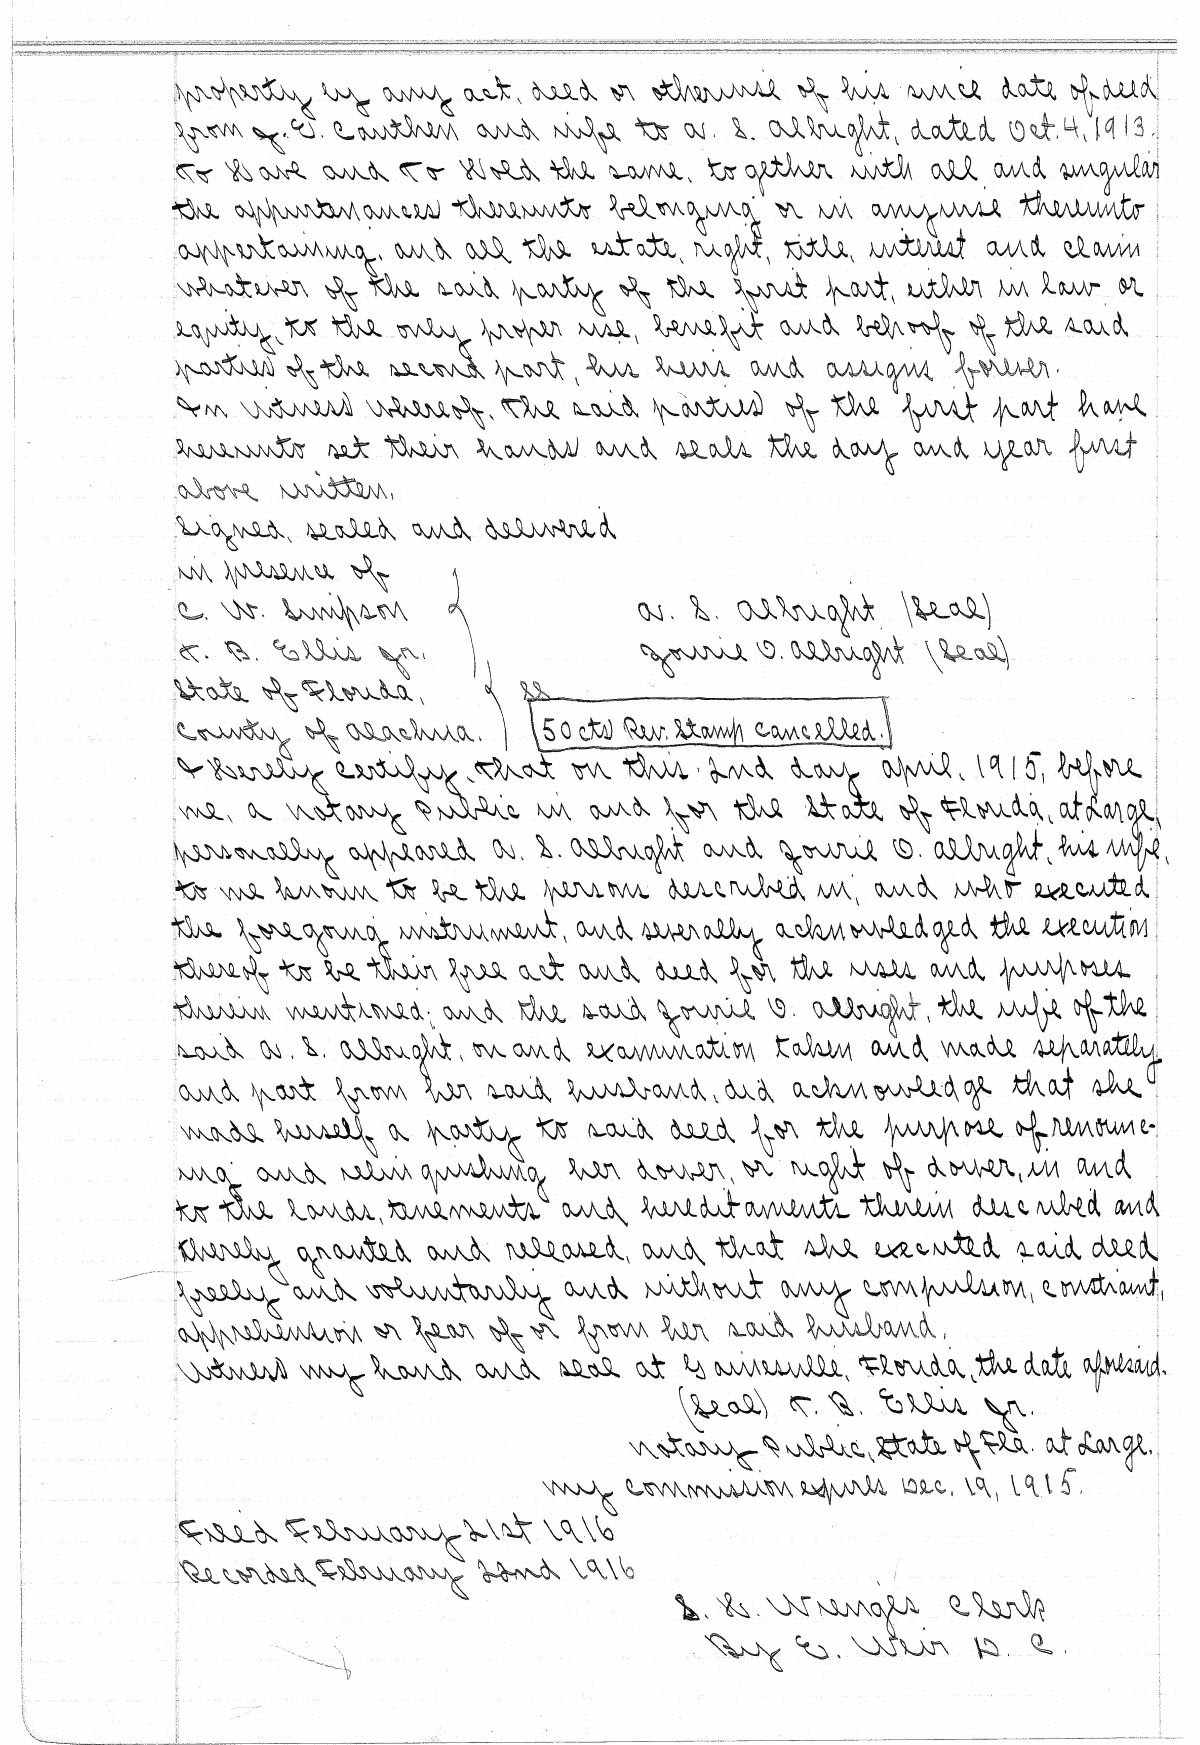 property by any act, deed or otherwise of his since date of deed
from J. E. Cauthen and wife to A. S. Albright, dated Oct. 4, 1913.
To Have and To Hold the same, together with all and singular
the appurtenances thereunto belonging or in anywise thereunto
appertaining, and all the estate, right, title, interest and claim
whatever of the said party of the first part, either in law or
equity, to the only proper use, benefit and behoof of the said
parties of the second part, his heirs and assigns forever.
In Witness Whereof, The said parties of the first part have
hereunto set their hands and seals the day and year first
above written.
Signed, sealed and delivered
in presence of
C. W. Simpson A. S. Albright (Seal)
T. B. Ellis Jr. O. Albright (Seal)
State of Florida, SS
County of Alachua. 50cts Rev. Stamp Cancelled.
I Hereby Certify, That on this 2nd day April, 1915, before
me, a Notary Public in and for the State of Florida, at Large,
personally appeared A. S. Albright and O. Albright, his wife,
to me known to be the persons described in, and who executed
the foregoing instrument, and severally acknowledged the execution
thereof to be their free act and deed for the uses and purposes
therein mentioned; and the said O. Albright, the wife of the
said A. S. Albright, on and examination taken and made separately
and part from her said husband, did acknowledge that she
made herself a party to said deed for the purpose of renounc-
ing and relinquishing her dower, or right of dower, in and
to the lands, tenements and hereditaments therein described and
thereby granted and released, and that she executed said deed
freely and voluntarily and without any compulsion, constraint,
apprehension or fear of or from her said husband.
Witness my hand and seal at Gainesville, Florida, the date aforesaid.
(Seal) T. B. Ellis Jr.
Notary Public, State of Fla. at Large.
My commission expires Dec. 19, 1915.
Filed February 21st 1916
Recorded February 22nd 1916
S. H. Wienges Clerk
By E. Weir D. C.